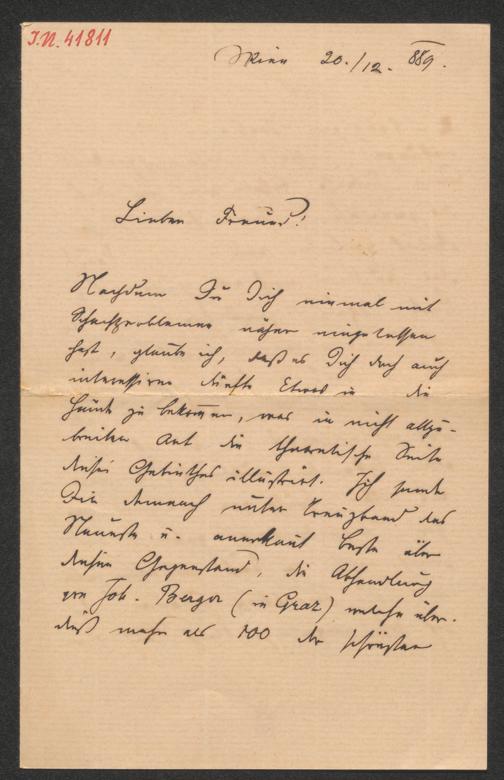 I.N. 41811
Wien 20./12. 889.
Lieber Freund!
Nachdem Du Dich einmal mit
Schachproblemen näher eingelassen
hast, glaube ich, daß es Dich doch auch
interessiren dürfte Etwas in die
Hände zu bekommen, was in nicht allzu-
breiter Art die theoretische Seite
dieses Gebiethes illustrirt. Ich sende
Dir demnach unter Kreuzband das
Neueste u. anerkant beste über
diesen Gegenstand, die Abhandlung
von Joh. Berger (in Graz) welche über-
dieß mehr als 100 der schönsten